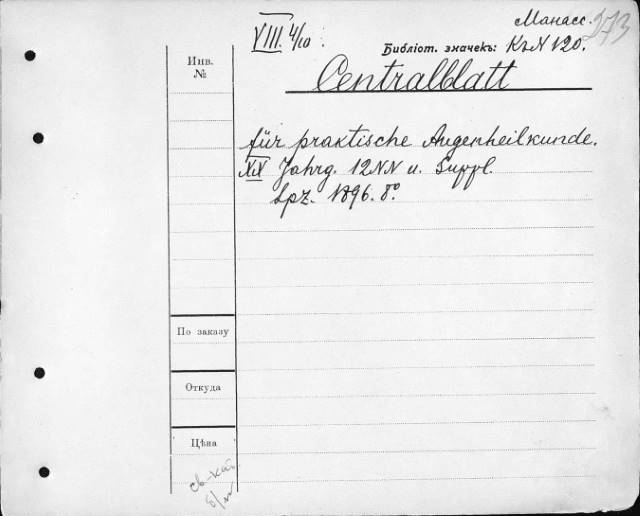 Манасс. 273
VIII. 4/10.
Библіот. значекъ: К2N 120.
Инв.
№
Centralblatt
für praktische Augenheilkunde.
XX Jahrg. 12NN u. Suppl.
Lpz. 1896. 8°
По заказу
Откуда
Цѣна